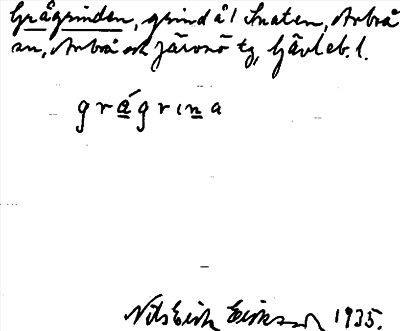 Grågrinden, grind å l Snaten, Arbrå
sn, Arbrå och Järvsö tg, Gävleb. l.
grágrına
Nils Erik Eriksson 1935.